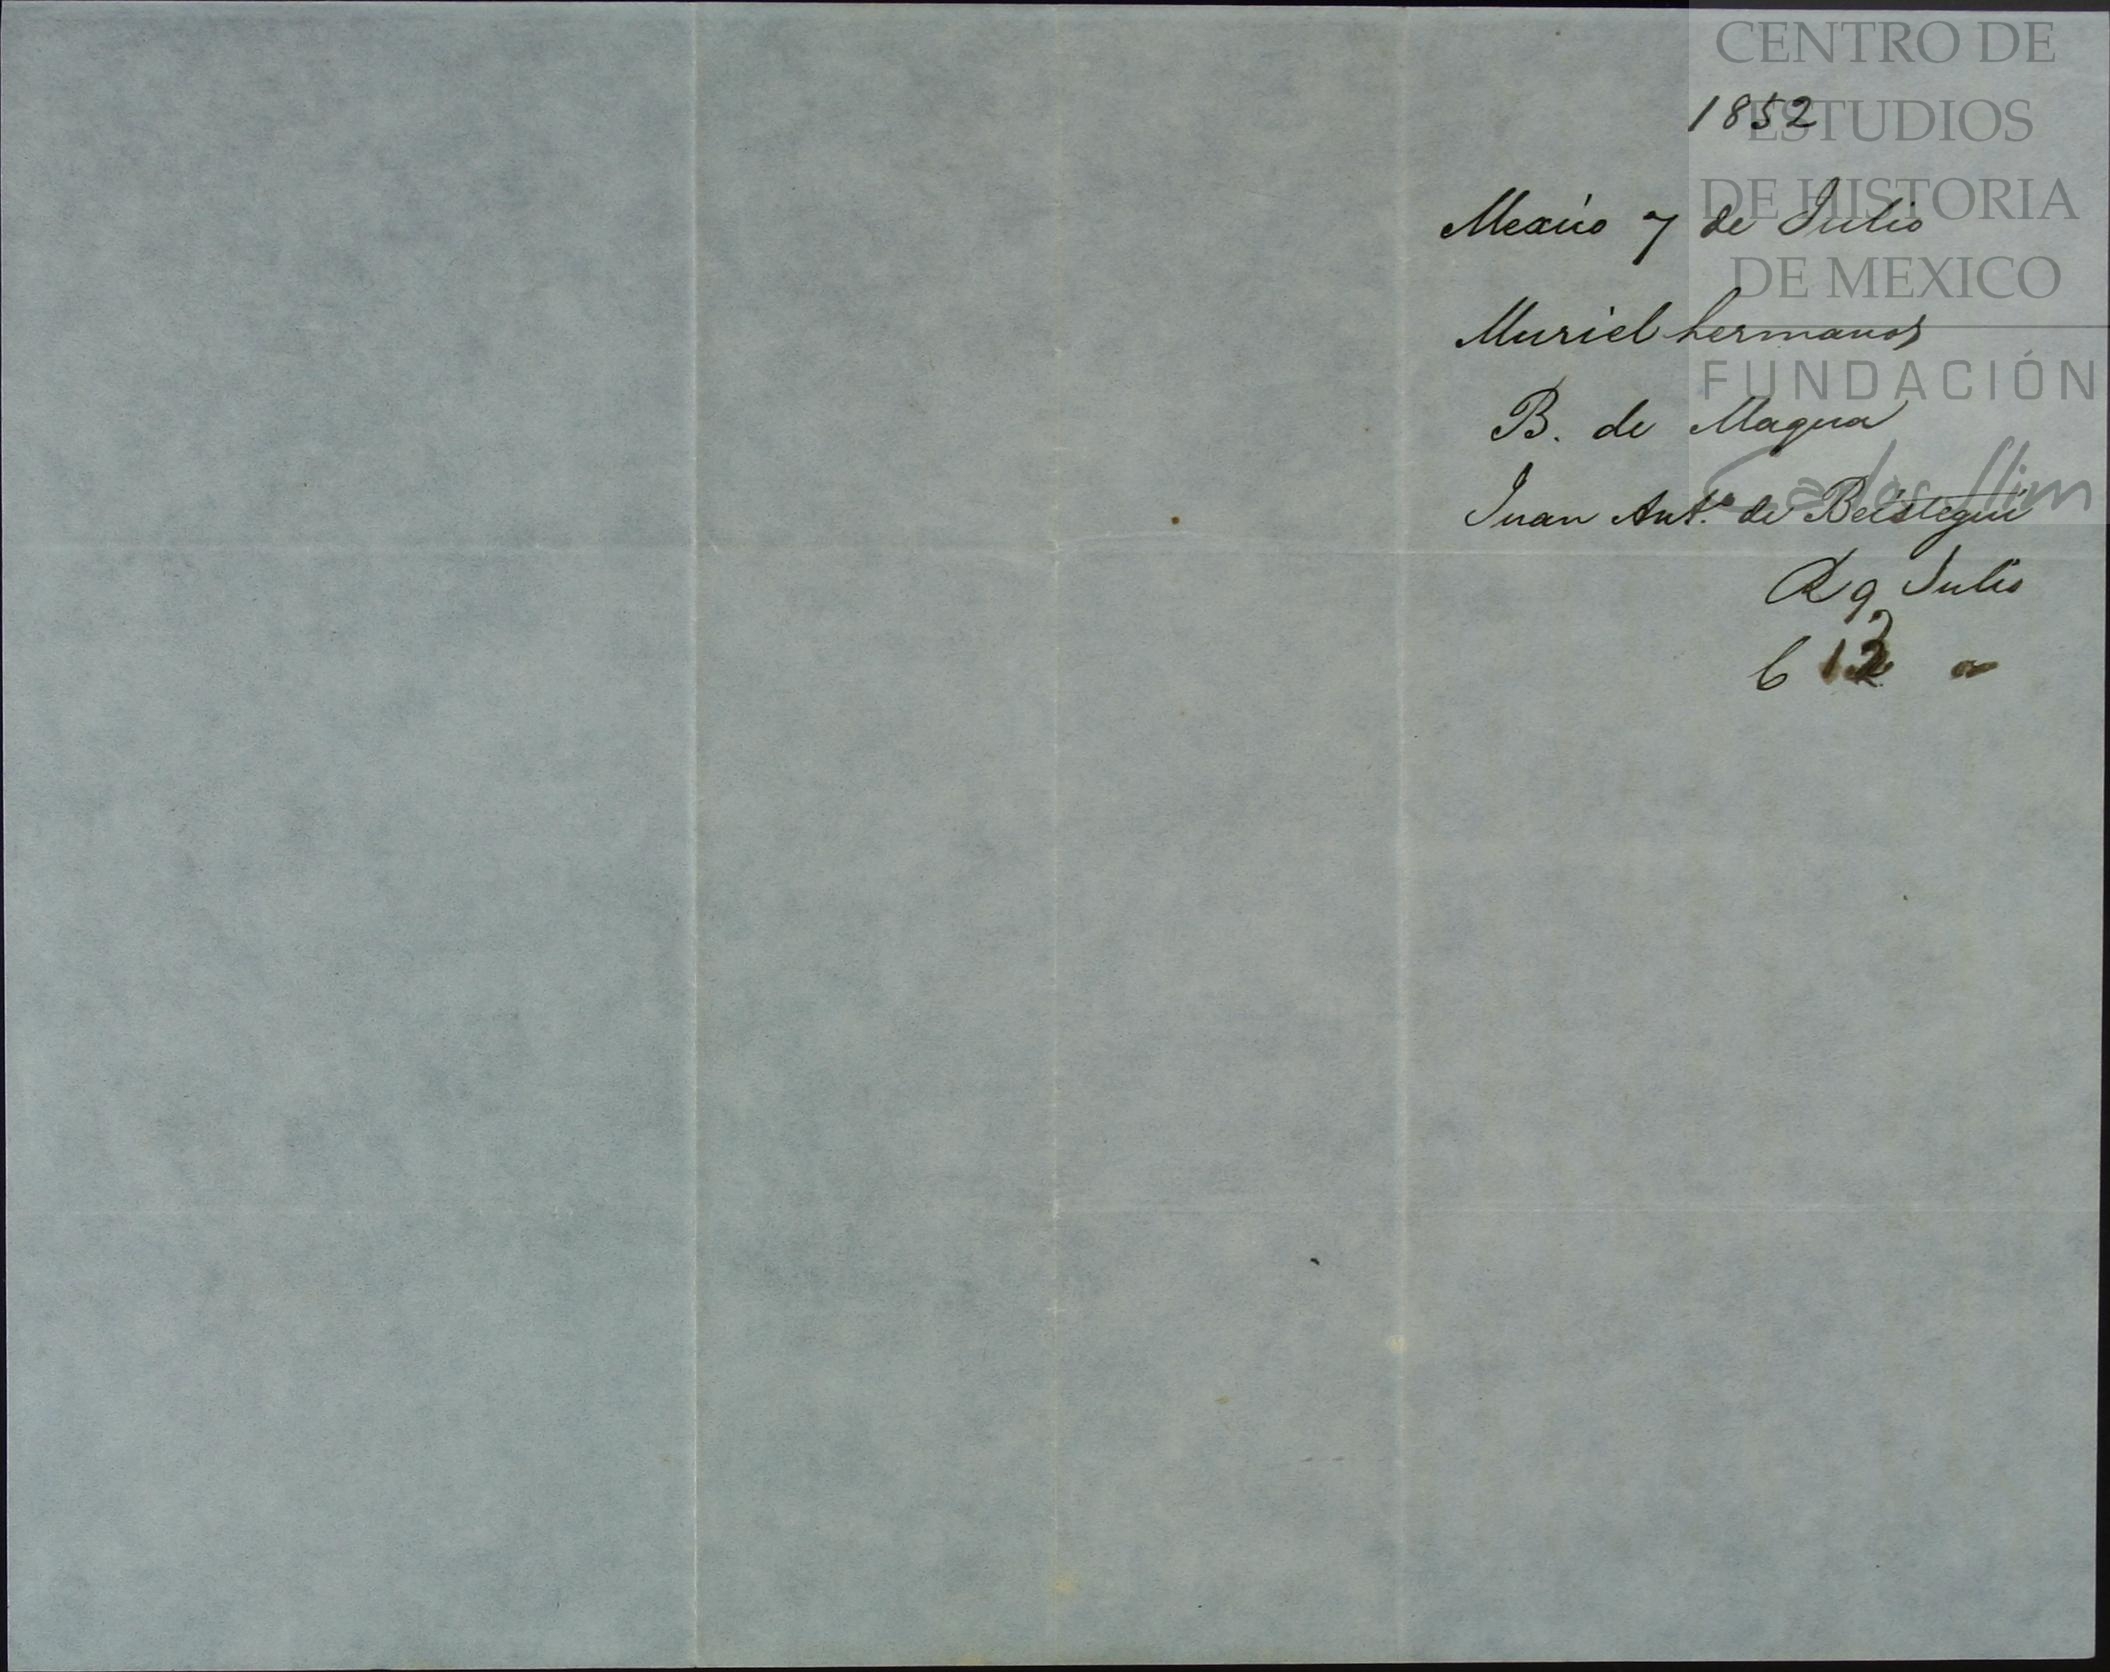 CENTRO DE
ESTUDIOS
DE HISTORIA
DE MEXICO
FUNDACIÓN
Carlos Slim
1852
Mexico 7 de Julio
Muriel hermanos
B. de Magua
Juan Ant.º de Beistegui
R 9 Julio
C 12